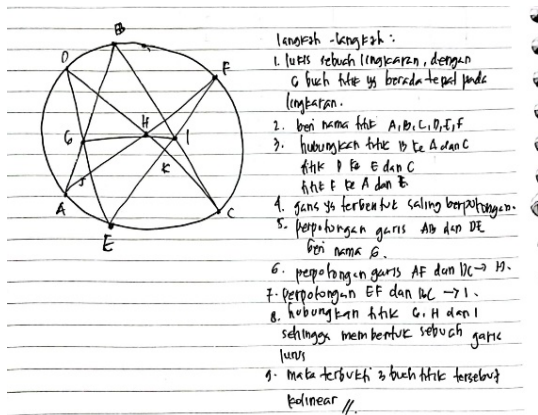 B
D
F
H
G
I
K
J
A
C
E
langkah - langkah :
1. lukis sebuah lingkaran, dengan
6 buah titik yg berada tepat pada
lingkaran.
2. beri nama titik A, B, C, D, E, F
3. hubungkan titik B ke A dan C
titik D ke E dan C
titik F ke A dan E.
4. garis yg terbentuk saling berpotongan.
5. perpotongan garis AB dan DE
beri nama G.
6. perpotongan garis AF dan DC → H.
7. perpotongan EF dan BC → I.
8. hubungkan titik G, H dan I
sehingga membentuk sebuah garis
lurus
9. maka terbukti 3 buah titik tersebut
kolinear //.